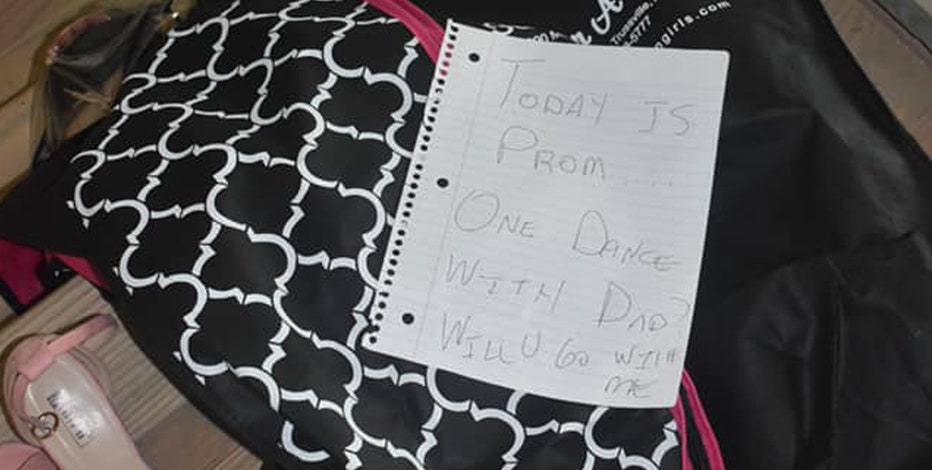 Trussville,
-5777
ngirls.com
TODAY IS
PROM.....
ONE DANCE
WITH DAD?
WILL U GO WITH
ME